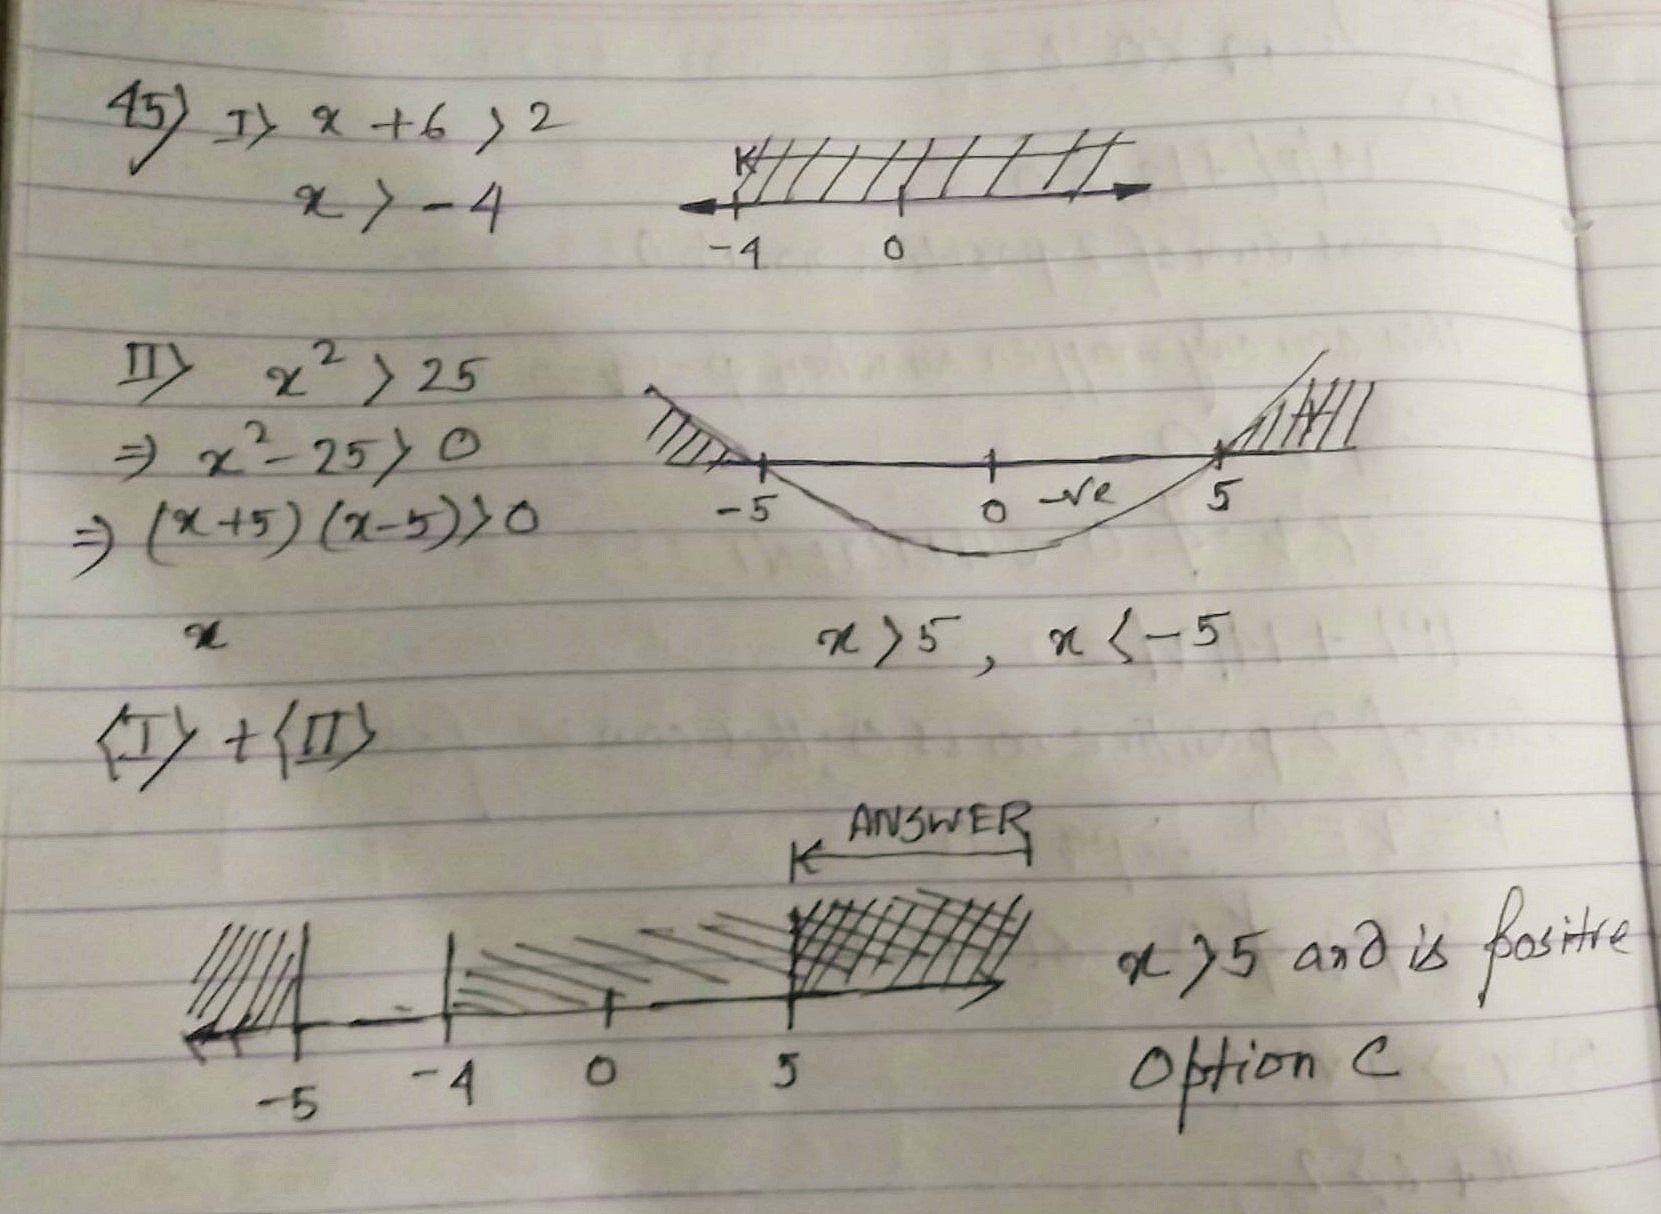 45) I> x + 6 > 2
x > -4
-4 0
II> x² > 25
⇒ x² - 25 > 0
⇒ (x+5) (x-5) > 0
-5 0 -ve 5
x
x > 5, x < -5
<I> + <II>
ANSWER
-5 -4 0 5
x > 5 and is positive
Option C